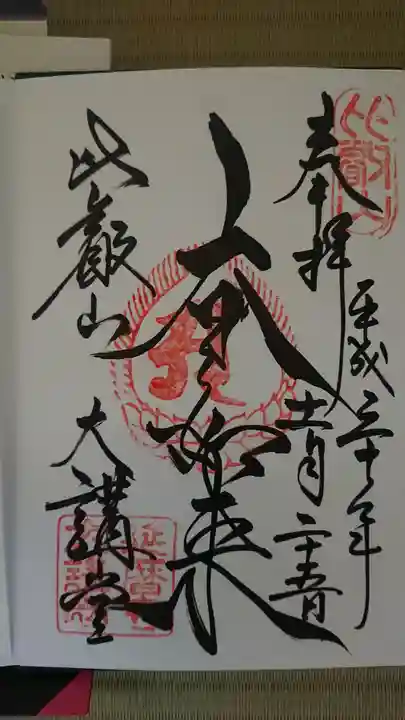 比叡山
奉拝
平成三十年
十一月二十五日
大日如来
比叡山
大講堂